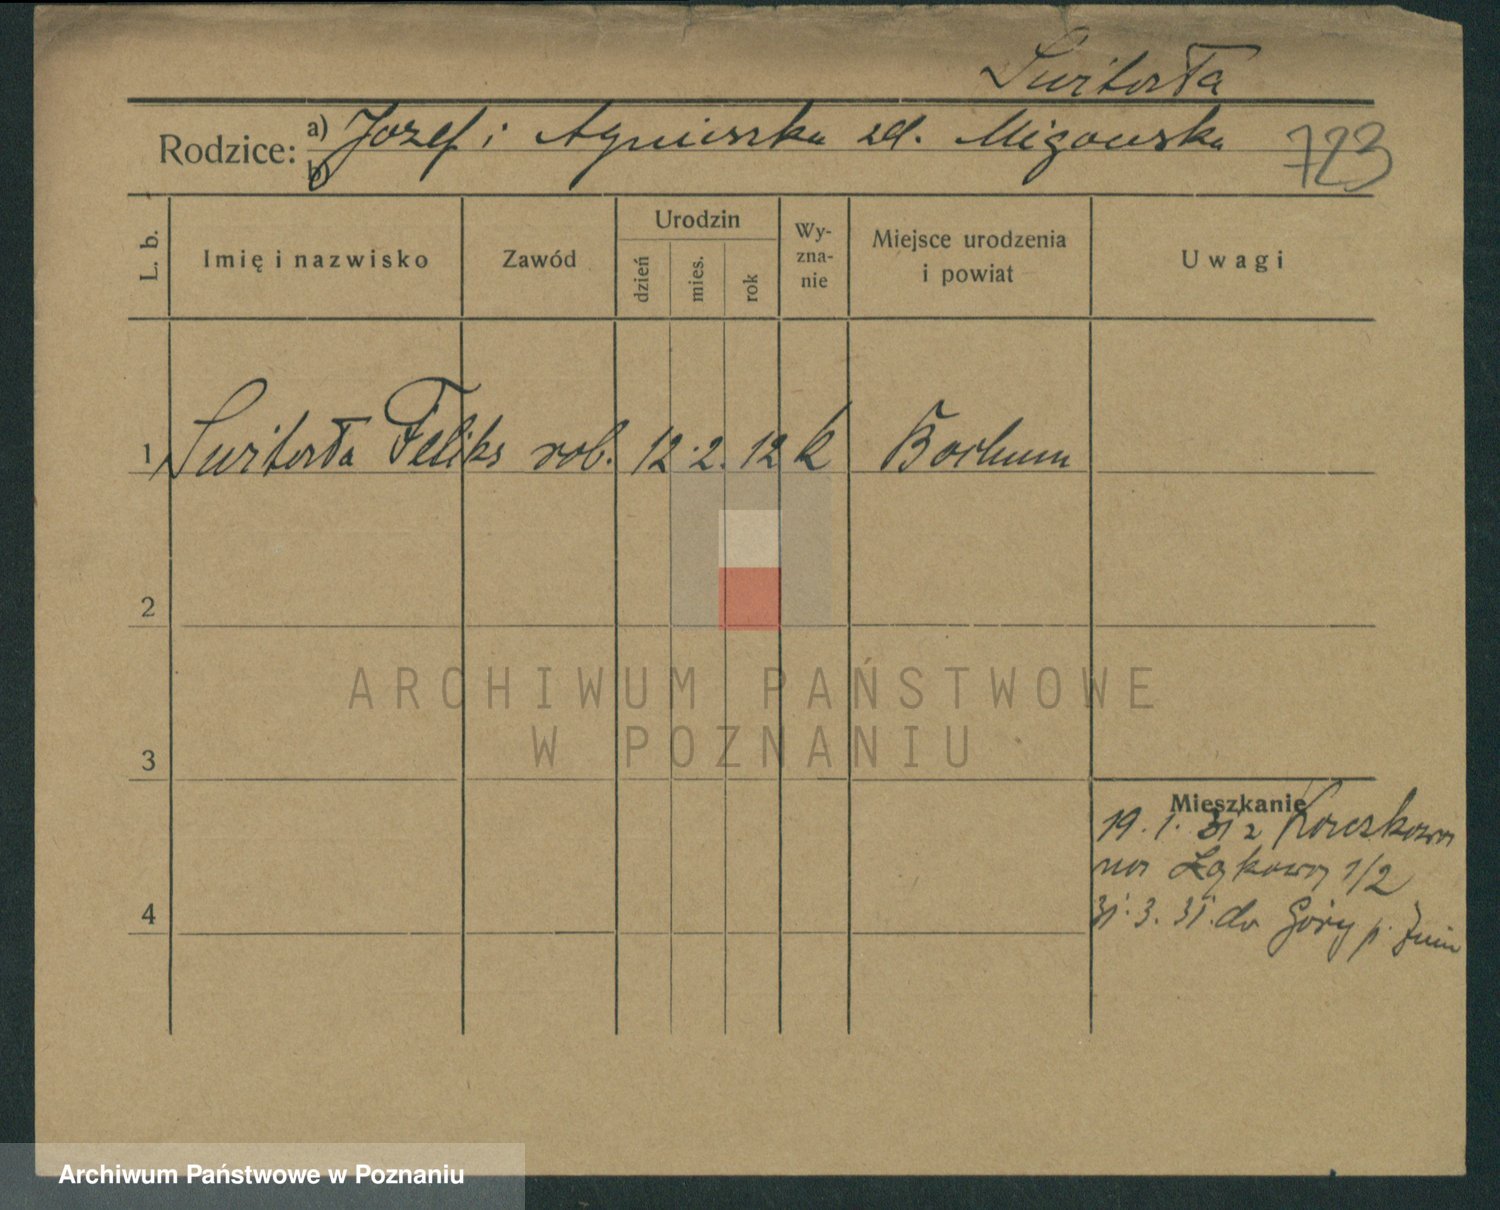 Switorta
Rodzice: a) Jozef i Agnieszka zd. Migowska 723
b)
L. b. Imię i nazwisko Zawód Urodzin dzień mies. rok Wy-zna-nie Miejsce urodzenia i powiat Uwagi
1 Switorta Feliks rob. 12. 2. 12 k Bochum
2
3
4
Mieszkanie
19. 1. 31 z
na Łąkową 1/2
31. 3. 31. do Góry p. Żnin
ARCHIWUM PAŃSTWOWE
W POZNANIU
Archiwum Państwowe w Poznaniu